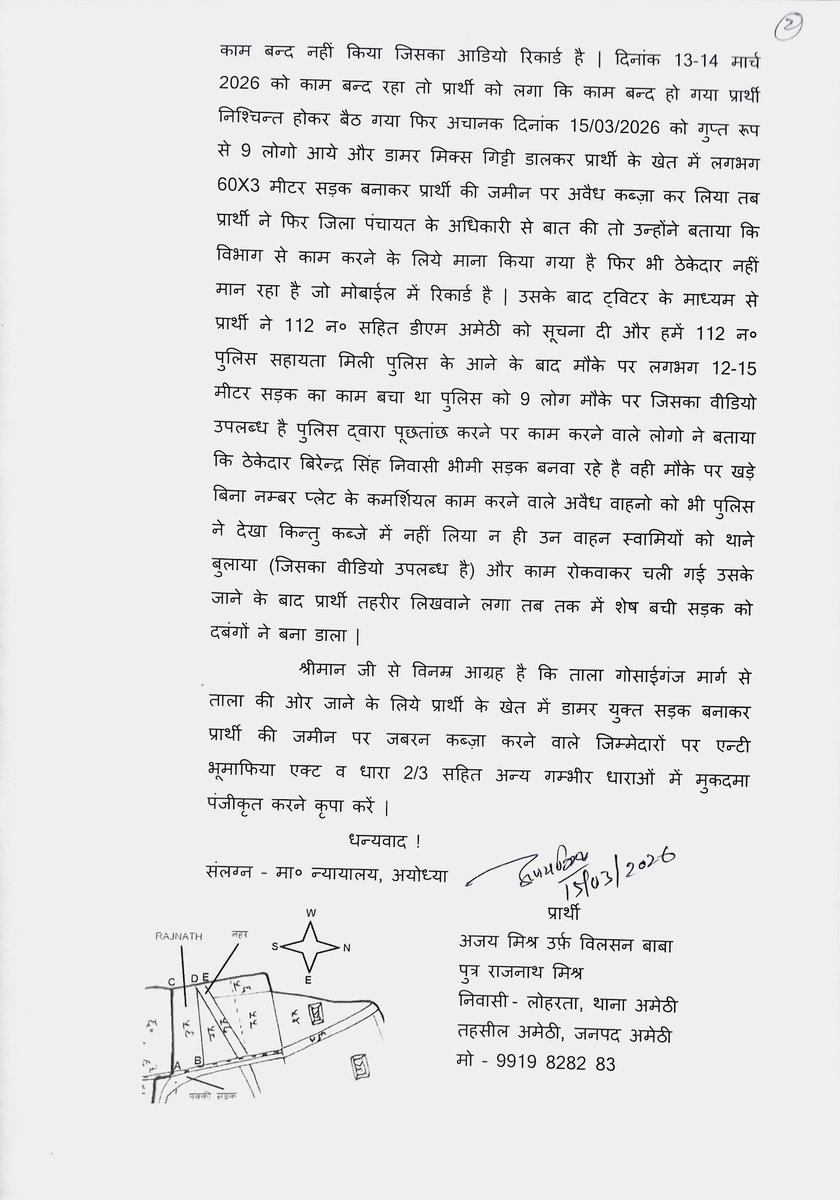 2
काम बन्द नहीं किया जिसका आडियो रिकार्ड है | दिनांक 13-14 मार्च
2026 को काम बन्द रहा तो प्रार्थी को लगा कि काम बन्द हो गया प्रार्थी
निश्चिन्त होकर बैठ गया फिर अचानक दिनांक 15/03/2026 को गुप्त रूप
से 9 लोगो आये और डामर मिक्स गिट्टी डालकर प्रार्थी के खेत में लगभग
60X3 मीटर सड़क बनाकर प्रार्थी की जमीन पर अवैध कब्ज़ा कर लिया तब
प्रार्थी ने फिर जिला पंचायत के अधिकारी से बात की तो उन्होंने बताया कि
विभाग से काम करने के लिये माना किया गया है फिर भी ठेकेदार नहीं
मान रहा है जो मोबाईल में रिकार्ड है | उसके बाद ट्विटर के माध्यम से
प्रार्थी ने 112 न० सहित डीएम अमेठी को सूचना दी और हमें 112 न०
पुलिस सहायता मिली पुलिस के आने के बाद मौके पर लगभग 12-15
मीटर सड़क का काम बचा था पुलिस को 9 लोग मौके पर जिसका वीडियो
उपलब्ध है पुलिस द्वारा पूछतांछ करने पर काम करने वाले लोगो ने बताया
कि ठेकेदार बिरेन्द्र सिंह निवासी भीमी सड़क बनवा रहे है वही मौके पर खड़े
बिना नम्बर प्लेट के कमर्शियल काम करने वाले अवैध वाहनो को भी पुलिस
ने देखा किन्तु कब्जे में नहीं लिया न ही उन वाहन स्वामियों को थाने
बुलाया (जिसका वीडियो उपलब्ध है) और काम रोकवाकर चली गई उसके
जाने के बाद प्रार्थी तहरीर लिखवाने लगा तब तक में शेष बची सड़क को
दबंगों ने बना डाला |
श्रीमान जी से विनम्र आग्रह है कि ताला गोसाईगंज मार्ग से
ताला की ओर जाने के लिये प्रार्थी के खेत में डामर युक्त सड़क बनाकर
प्रार्थी की जमीन पर जबरन कब्ज़ा करने वाले जिम्मेदारों पर एन्टी
भूमाफिया एक्ट व धारा 2/3 सहित अन्य गम्भीर धाराओं में मुकदमा
पंजीकृत करने कृपा करें |
धन्यवाद !
संलग्न - मा० न्यायालय, अयोध्या
15/03/2026
प्रार्थी
अजय मिश्र उर्फ़ विलसन बाबा
पुत्र राजनाथ मिश्र
निवासी - लोहरता, थाना अमेठी
तहसील अमेठी, जनपद अमेठी
मो - 9919 8282 83
RAJNATH
नहर
W
S
N
E
C D E
A B
पक्की सड़क